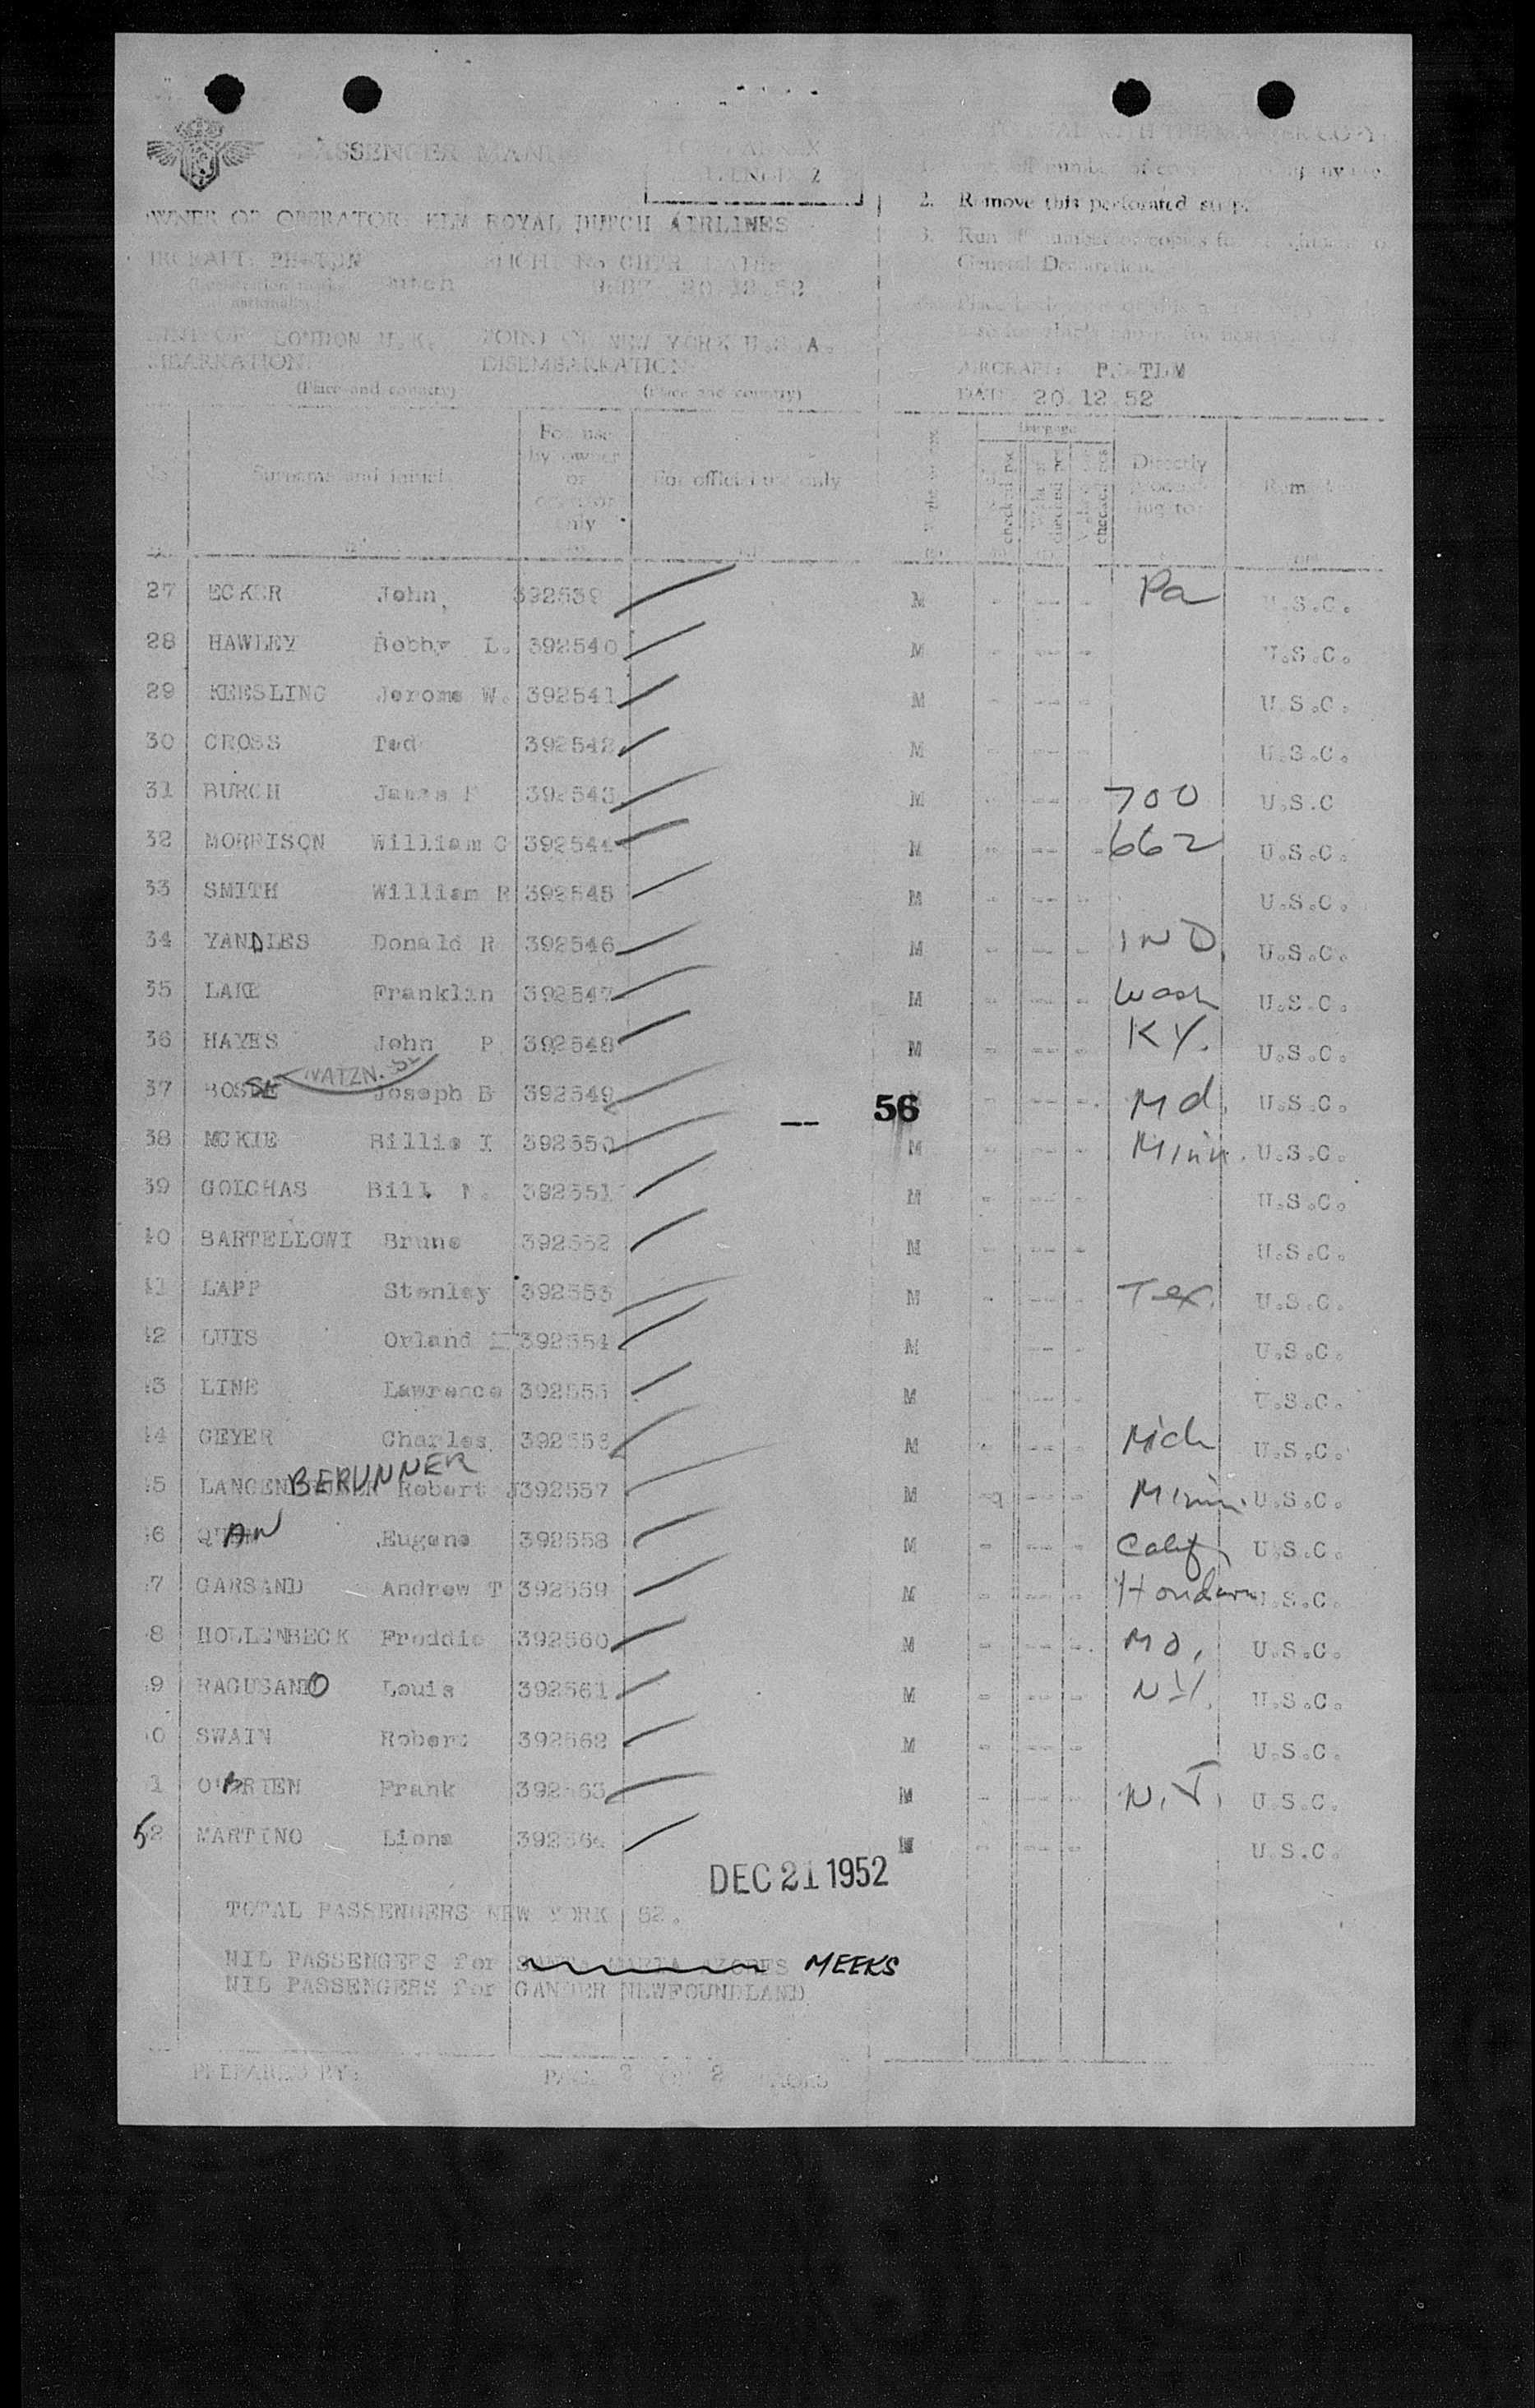 PASSENGER MANI
2
WITH THE MASTER COPY
2. Remove this perforated strip.
3. Run off number of copies for
General Declaration.
OWNER OR OPERATOR: KLM ROYAL DUTCH AIRLINES
AIRCRAFT: PH-TDM FLIGHT No CHTR
Dutch 20.12.52
POINT OF LONDON U.K. POINT OF NEW YORK U.S.A.
EMBARKATION: DISEMBARKATION:
(Place and country) (Place and country)
AIRCRAFT: PH-TDM
DATE 20.12.52
Surname and initials For use by owner or operator only For official use only Directly proceeding to: Remarks
27 ECKER John, 392539 M - -- - Pa U.S.C.
28 HAWLEY Bobby L. 392540 M - -- - U.S.C.
29 KEESLING Jerome W. 392541 M - -- - U.S.C.
30 CROSS Ted 392542 M - -- - U.S.C.
31 BURCH James 392543 M - -- 700 U.S.C
32 MORRISON William C 392544 M - -- - 662 U.S.C.
33 SMITH William R 392545 M - -- - U.S.C.
34 YANDLES Donald R 392546 M - -- - IND. U.S.C.
35 LAKE Franklin 392547 M - -- - Wash U.S.C.
36 HAYES John P. 392548 M - -- - KY. U.S.C.
NATZN.
37 BOSSE Joseph B 392549 56 - -- - Md. U.S.C.
38 MCKIE Billie I 392550 M - -- - Minn. U.S.C.
39 GOLCHAS Bill 392551 M - -- - U.S.C.
40 BARTELLOWI Bruno 392552 M - -- - U.S.C.
41 LAPP Stanley 392553 M - -- - Tex. U.S.C.
42 LUIS Orland 392554 M -- - U.S.C.
43 LINE Lawrence 392555 M -- - U.S.C.
44 GEYER Charles 392556 M - -- - Mich U.S.C.
45 LANGENBERUNNER Robert J 392557 M - -- - Minn. U.S.C.
46 QUAN Eugene 392558 M - -- - Calif U.S.C.
47 GARSAND Andrew T 392559 M - -- - Honduras U.S.C.
48 HOLLENBECK Freddie 392560 M - -- - Mo. U.S.C.
49 RAGUSANO Louis 392561 M - -- - NY. U.S.C.
50 SWAIN Robert 392562 M - -- - U.S.C.
51 O'BRIEN Frank 392563 M - -- - N.J. U.S.C.
52 MARTINO Liona 392564 M - -- - U.S.C.
DEC 21 1952
TOTAL PASSENGERS NEW YORK 52.
NIL PASSENGERS for SANTA MARIA AZORES MEEKS
NIL PASSENGERS for GANDER NEWFOUNDLAND
PREPARED BY: PAGE 2 OF 2 PAGES